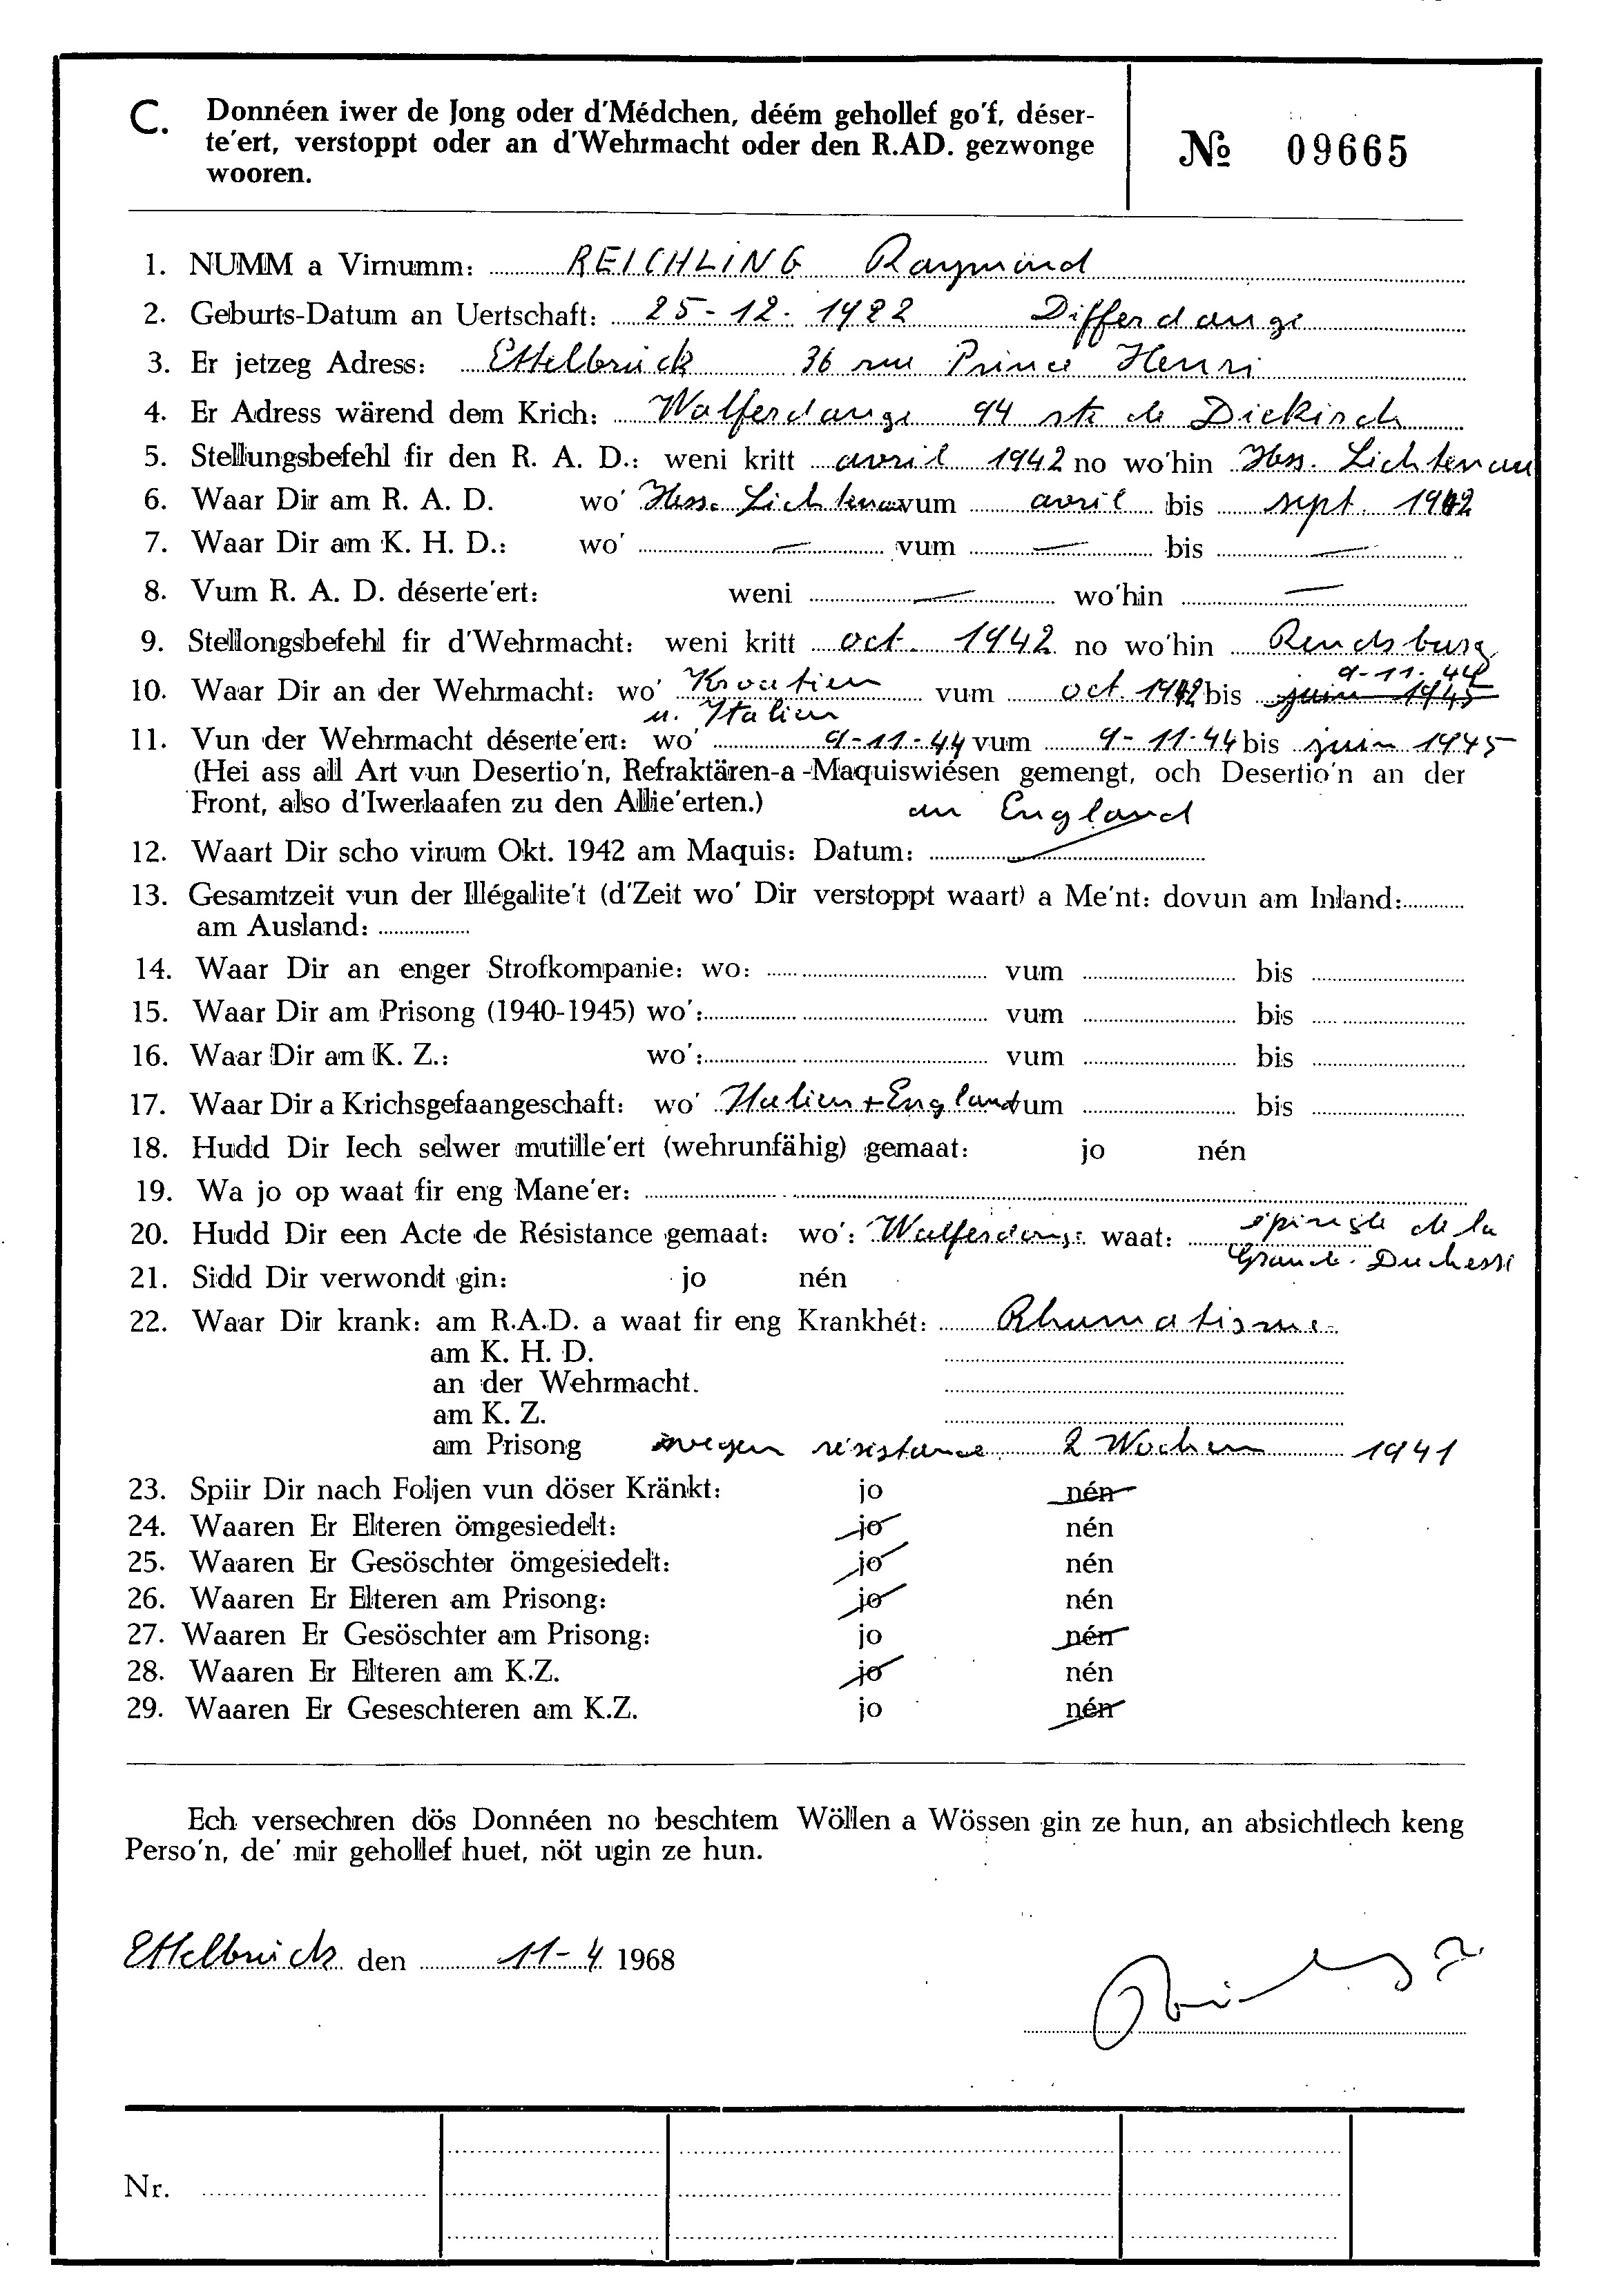 C. Donnéen iwer de Jong oder d'Médchen, déém gehollef go'f, déser-
te'ert, verstoppt oder an d'Wehrmacht oder den R.AD. gezwonge
wooren.
№ 09665
1. NUMM a Virnumm: REICHLING Raymond
2. Geburts-Datum an Uertschaft: 25-12-1922 Differdange
3. Er jetzeg Adress: Ettelbrück 36 rue Prince Henri
4. Er Adress wärend dem Krich: Walferdange 94 rte de Diekirch
5. Stellungsbefehl fir den R. A. D.: weni kritt avril 1942 no wo'hin Hss. Lichtenau
6. Waar Dir am R. A. D. wo' Hess. Lichtenau vum avril bis sept. 1942
7. Waar Dir am K. H. D.: wo' — vum — bis —
8. Vum R. A. D. déserte'ert: weni — wo'hin —
9. Stellongsbefehl fir d'Wehrmacht: weni kritt oct. 1942 no wo'hin Rendsburg
10. Waar Dir an der Wehrmacht: wo' Kroatien u. Italien vum oct. 1942 bis juin 1945 9-11-44
11. Vun der Wehrmacht déserte'ert: wo' 9-11-44 vum 9-11-44 bis juin 1945
(Hei ass all Art vun Desertio'n, Refraktären-a-Maquiswiésen gemengt, och Desertio'n an der
Front, also d'Iwerlaafen zu den Allie'erten.) an England
12. Waart Dir scho virum Okt. 1942 am Maquis: Datum: —
13. Gesamtzeit vun der Illégalite't (d'Zeit wo' Dir verstoppt waart) a Me'nt: dovun am Inland:
am Ausland:
14. Waar Dir an enger Strofkompanie: wo: vum bis
15. Waar Dir am Prisong (1940-1945) wo': vum bis
16. Waar Dir am K. Z.: wo': vum bis
17. Waar Dir a Krichsgefaangeschaft: wo' Italien + England vum bis
18. Hudd Dir Iech selwer mutille'ert (wehrunfähig) gemaat: jo nén
19. Wa jo op waat fir eng Mane'er:
20. Hudd Dir een Acte de Résistance gemaat: wo': Walferdange waat: épingle de la
Grande-Duchesse
21. Sidd Dir verwondt gin: jo nén
22. Waar Dir krank: am R.A.D. a waat fir eng Krankhét: Rhumatisme
am K. H. D.
an der Wehrmacht.
am K. Z.
am Prisong wegen résistance 2 Wochen 1941
23. Spiir Dir nach Foljen vun döser Kränkt: jo nén
24. Waaren Er Elteren ömgesiedelt: jo nén
25. Waaren Er Gesöschter ömgesiedelt: jo nén
26. Waaren Er Elteren am Prisong: jo nén
27. Waaren Er Gesöschter am Prisong: jo nén
28. Waaren Er Elteren am K.Z. jo nén
29. Waaren Er Geseschteren am K.Z. jo nén
Ech versechren dös Donnéen no beschtem Wöllen a Wössen gin ze hun, an absichtlech keng
Perso'n, de' mir gehollef huet, nöt ugin ze hun.
Ettelbrück den 11-4 1968
Nr.